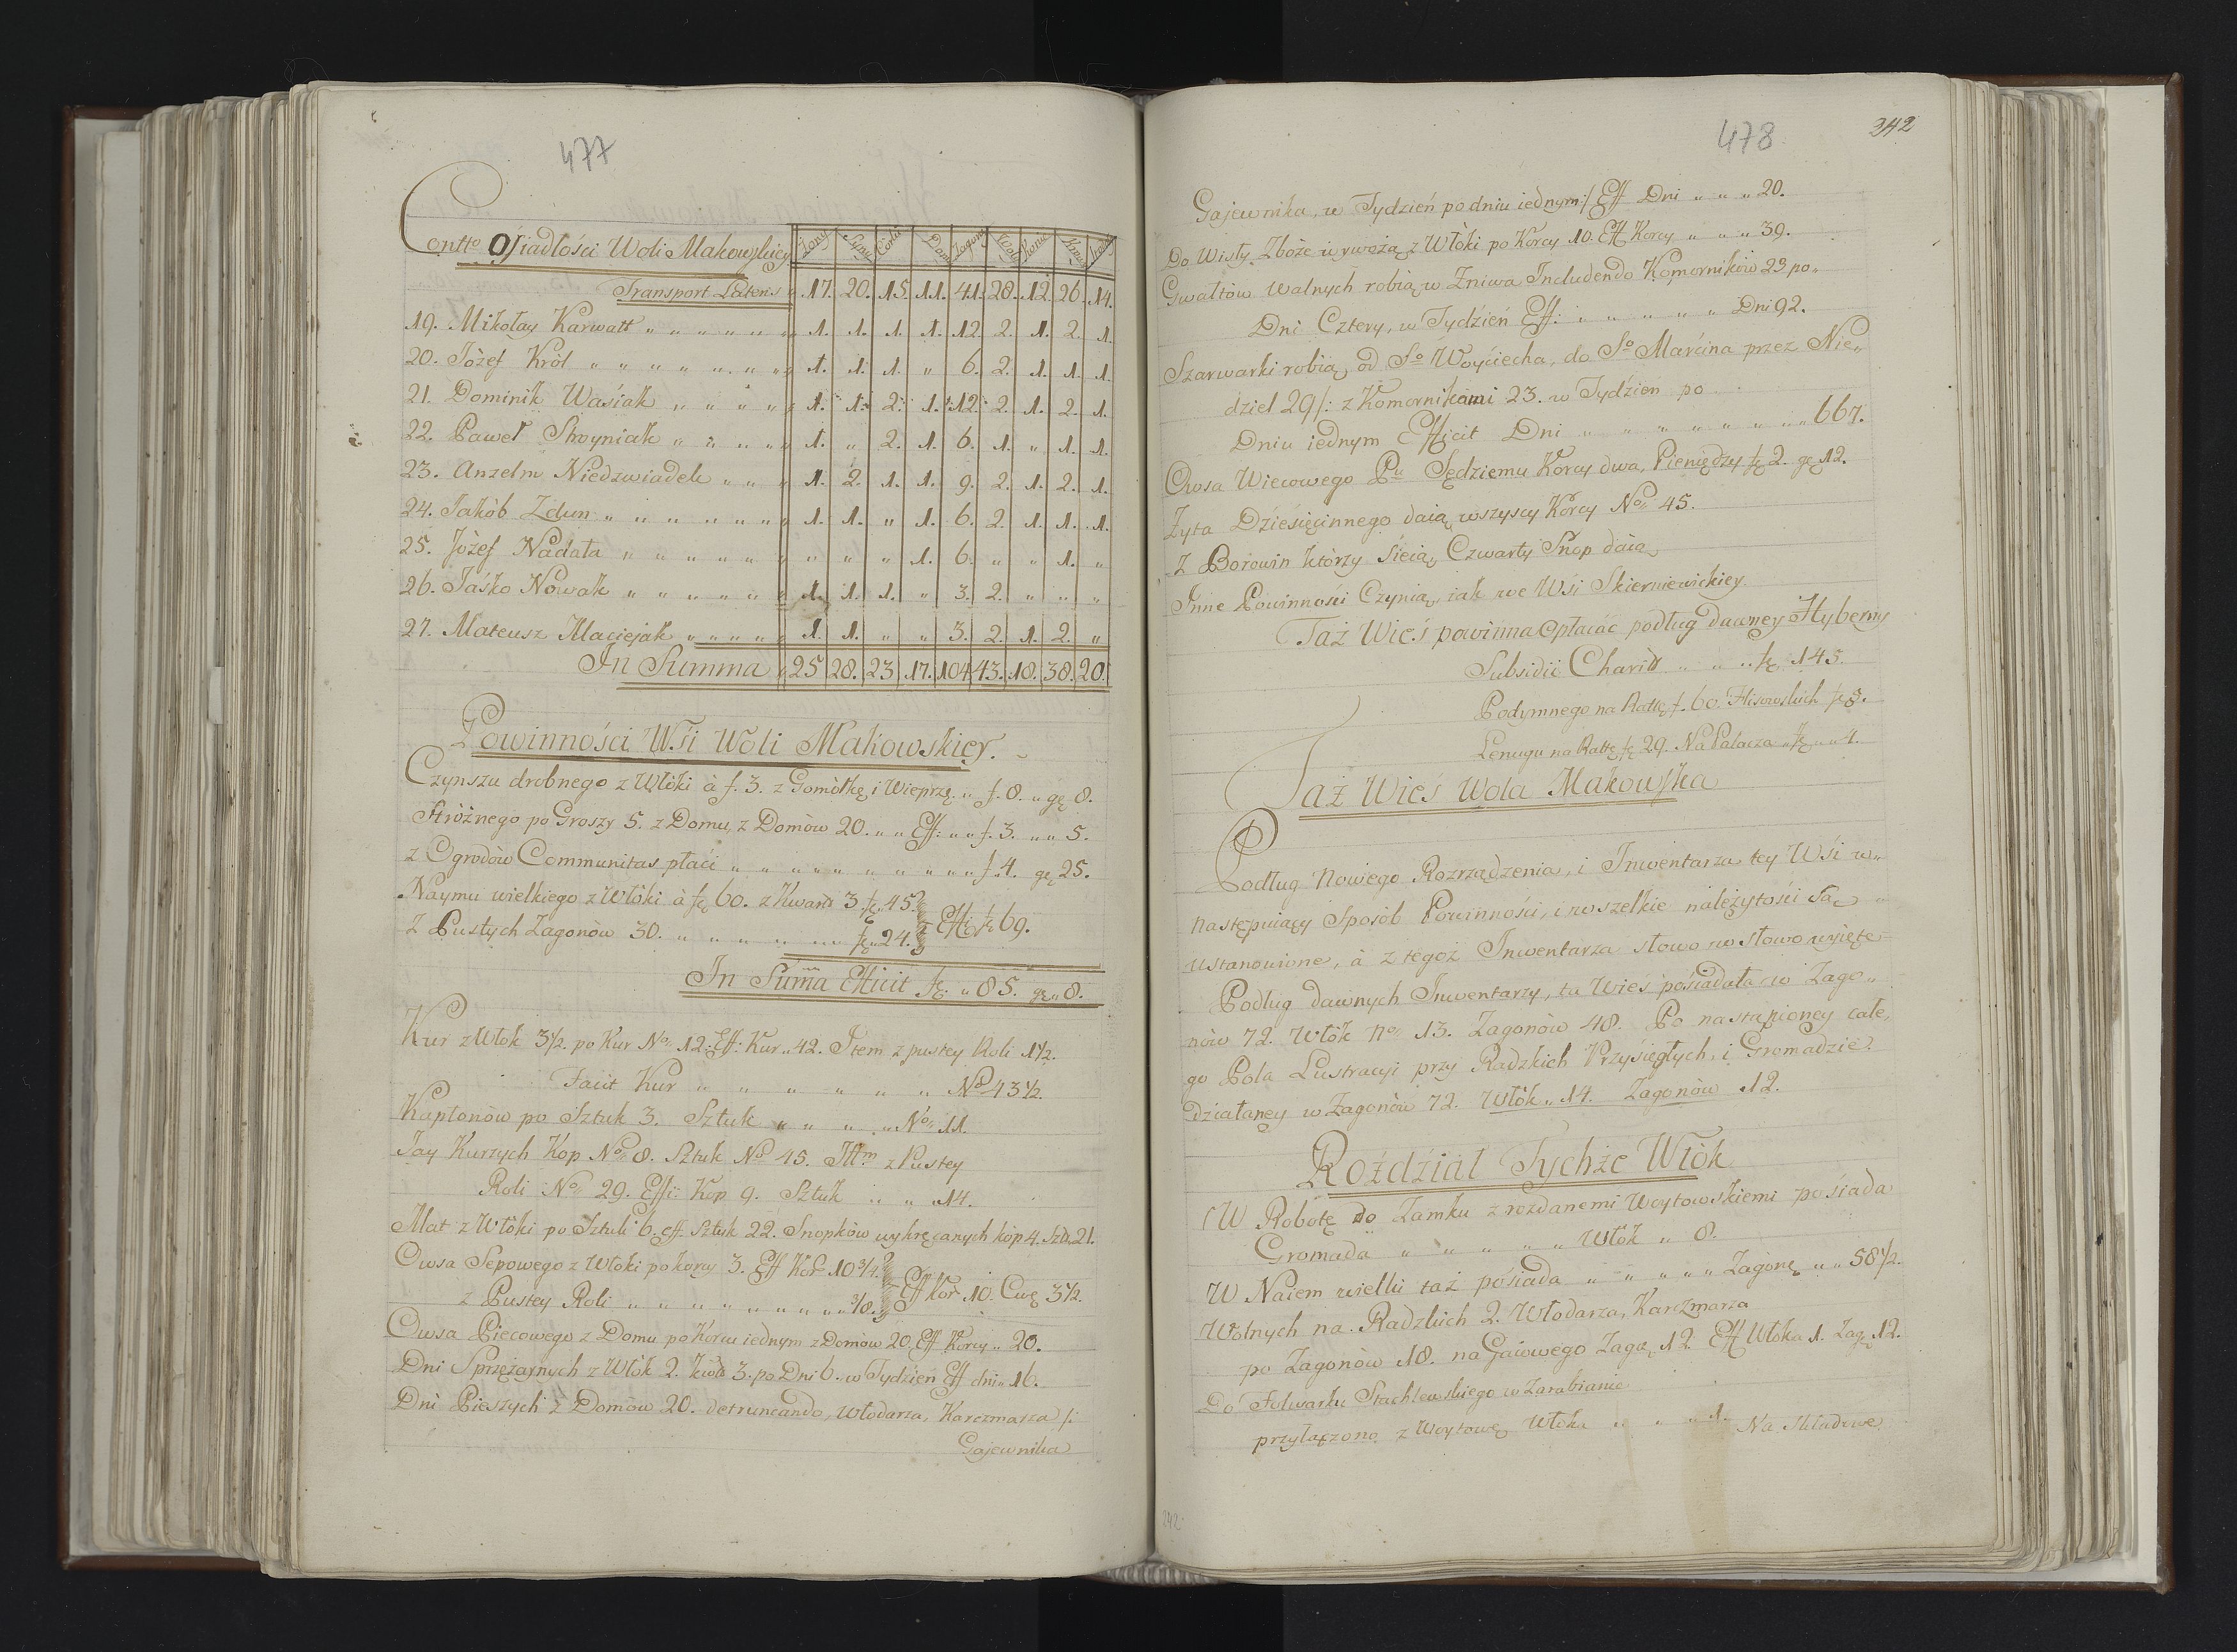 477
Contto Osiadłości Woli Makowskiey Żony Syny Córki Dom Zagony Woły Konie Krowy
Transport Lateris 17. 20. 15. 11. 41. 28. 12. 26. 14.
19. Mikołay Karwatt „ „ „ „ „ „ 1. 1. 1. 1. 12. 2. 1. 2. 1.
20. Józef Król „ „ „ „ „ „ „ 1. 1. 1. „ 6. 2. 1. 1. 1.
21. Dominik Wasiak „ „ „ „ 1. 1. 2. 1. 12. 2. 1. 2. 1.
22. Paweł Stroyniak „ „ „ „ 1. „ 2. 1. 6. 1. „ 1. 1.
23. Anzelm Niedzwiadek „ „ „ 1. 2. 1. 1. 9. 2. 1. 2. 1.
24. Jakób Zdun „ „ „ „ „ „ 1. 1. „ 1. 6. 2. 1. 1. 1.
25. Józef Nadata „ „ „ „ „ „ „ „ 1. 6. „ „ 1. „
26. Jaśko Nowak „ „ „ „ „ 1. 1. 1. „ 3. 2. „ „ „
27. Mateusz Maciejak „ „ „ „ 1. 1. „ „ 3. 2. 1. 2. „
In Summa 25 28. 23 17. 104 43. 18. 38. 20.
Powinności Wsi Woli Makowskiey.
Czynszu drobnego z Włóki à f. 3. z Gomółkę i Wieprzę „ f. 8. „ gę 8.
Stróżnego po Groszy 5. z Domu, z Domów 20. „ „ Eff: „ „ f. 3. „ „ 5.
z Ogrodów Communitas płaci „ „ „ „ „ „ „ „ „ f. 4. gę 25.
Naymu wielkiego z Włóki à fę 60. z Kward 3. fę 45. Effi fę 69.
Z Pustych Zagonów 30. „ „ „ „ „ „ fę „ 24.
In Sum̃a Efficit fę. „ 85. gę „ 8.
Kur z Włok 3½. po Kur No. 12. Eff: Kur „ 42. Item z pustey Roli 1½.
Faiit Kur „ „ „ „ „ „ No 43½.
Kapłonów po Sztuk 3. Sztuk „ „ „ „ No. 11.
Jay Kurzych Kop No. 8. Sztuk No 15. Ittm z Pustey
Roli No 29. Effi: Kop 9. Sztuk „ „ „ 14.
Mat z Włóki po Sztuk 6. eff. Sztuk 22. Snopków wykręcanych kóp 4. Sztk 21.
Owsa Sepowego z Włóki po korcy 3. Eff Kor 10¾. Eff Kor 10. Cwę 3½.
z Pustey Roli „ „ „ „ „ „ „ „ „ 3/8.
Owsa Piecowego z Domu po Korcu iednym z Domów 20. Eff Korcy „ 20.
Dni Sprzężaynych z Włók 2. Kwd 3. po Dni 6. w Tydzień Eff dni „ 16.
Dni Pieszych z Domów 20. detruncando, Włodarza, Karczmarza /:
Gajewnika
478
342
Gajewnika, w Tydzień po dniu iednym :/ Eff Dni „ „ „ 20.
Do Wisły Zboże wywożą z Włóki po Korcy 10. Eff Korcy „ „ „ 39.
Gwałtów Walnych robią w Zniwa Includendo Komorników 23 po „
Dni Cztery, w Tydzień Eff: „ „ „ „ „ Dni 92.
Szarwarki robią od So Woyciecha, do So Marcina przez Nie„
dziel 29 /: z Komornikami 23. w Tydzień po
Dniu iednym Efficit Dni „ „ „ „ „ „ „ 667.
Owsa Wiecowego Pu Sędziemu Korcy dwa, Pieniędzy fę 2. gę 12.
Zyta Dziesięcinnego daią wszyscy Korcy No 45.
Z Borowin którzy Sieią, Czwarty Snop daią
Inne Powinności Czynią, iak we Wsi Skierniewickiey.
Taż Wieś powinna Opłacać podług dawney Hyberny
Subsidii Charitt „ „ „ fę 145.
Podymnego na Rattę f. 60. Flisowskich fę 8.
Lenugu na Rattę fę 29. Na Palacza „ fę „ „ 4.
Taż Wieś Wola Makowska
Podług Nowego Rozrządzenia, i Inwentarza tey Wsi w„
następuiący Sposób Powinności, i wszelkie należytości Są „
ustanowione, à z tegoż Inwentarza słowo w słowo wzięte
Podług dawnych Inwentarzy, ta Wieś posiadała w Zago„
nów 72. Włók No 13. Zagonów 48. Po nastąpioney całe„
go Pola Lustracyi przy Radzkich Przysięgłych, i Gromadzie
działaney w Zagonów 72. Włók „ 14. Zagonów 12.
Rozdział Tychże Włók
W Robotę do Zamku z rozdanemi Woytowskiemi posiada
Gromada „ „ „ „ „ Włók „ 8.
W Naiem wielki taż posiada „ „ „ „ „ Zagonę „ „ 58½.
Wolnych na Radzkich 2. Włodarza, Karczmarza
po Zagonów 18. na Gaiowego Zago 12. Eff Włóka 1. Zagę 12.
Do Folwarku Stachlewskiego w Zarabianie
przyłączono z Woytowę Włóka „ „ „ 1. Na Składowe
242